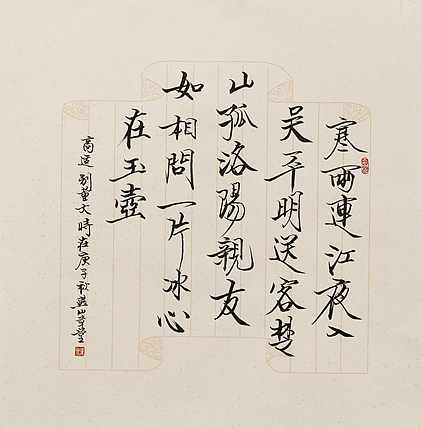 寒雨連江夜入
吴平明送客楚
山孤洛陽親友
如相問一片冰心
在玉壺
高适别董大時在庚子秋燕山草堂